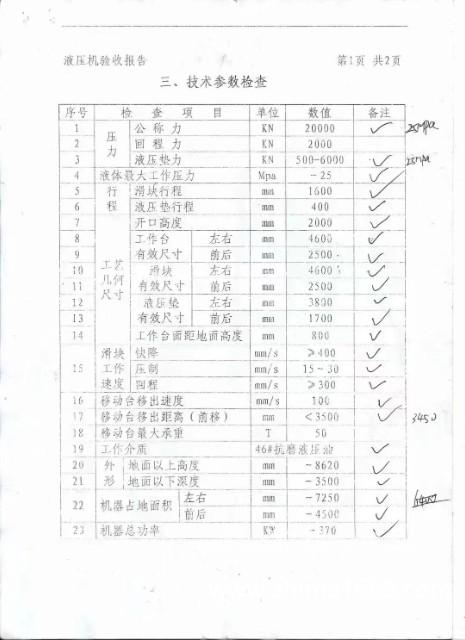 液压机验收报告 第1页 共2页
三、技术参数检查
序号 检 查 项 目 单位 数值 备注
1 压力 公称力 KN 20000 ✓ 25mpa
2 回程力 KN 2000
3 液压垫力 KN 500-6000 ✓ 25mpa
4 液体最大工作压力 Mpa ~25 ✓
5 行程 滑块行程 mm 1600 ✓
6 液压垫行程 mm 400 ✓
7 开口高度 mm 2000 ✓
8 工艺几何尺寸 工作台有效尺寸 左右 mm 4600 ✓
9 前后 mm 2500 ✓
10 滑块有效尺寸 左右 mm 4600 ✓
11 前后 mm 2500 ✓
12 液压垫有效尺寸 左右 mm 3800 ✓
13 前后 mm 1700 ✓
14 工作台面距地面高度 mm 800 ✓
15 滑块工作速度 快降 mm/s ≥400 ✓
压制 mm/s 15~30 ✓
回程 mm/s ≥300 ✓
16 移动台移出速度 mm/s 100 ✓
17 移动台移出距离(前移) mm <3500 ✓ 3450
18 移动台最大承重 T 50
19 工作介质 46#抗磨液压油 ✓
20 外形 地面以上高度 mm ~8620 ✓
21 地面以下深度 mm ~3500 ✓
22 机器占地面积 左右 mm ~7250 ✓
前后 mm ~4500 ✓
23 机器总功率 KW ~370 ✓